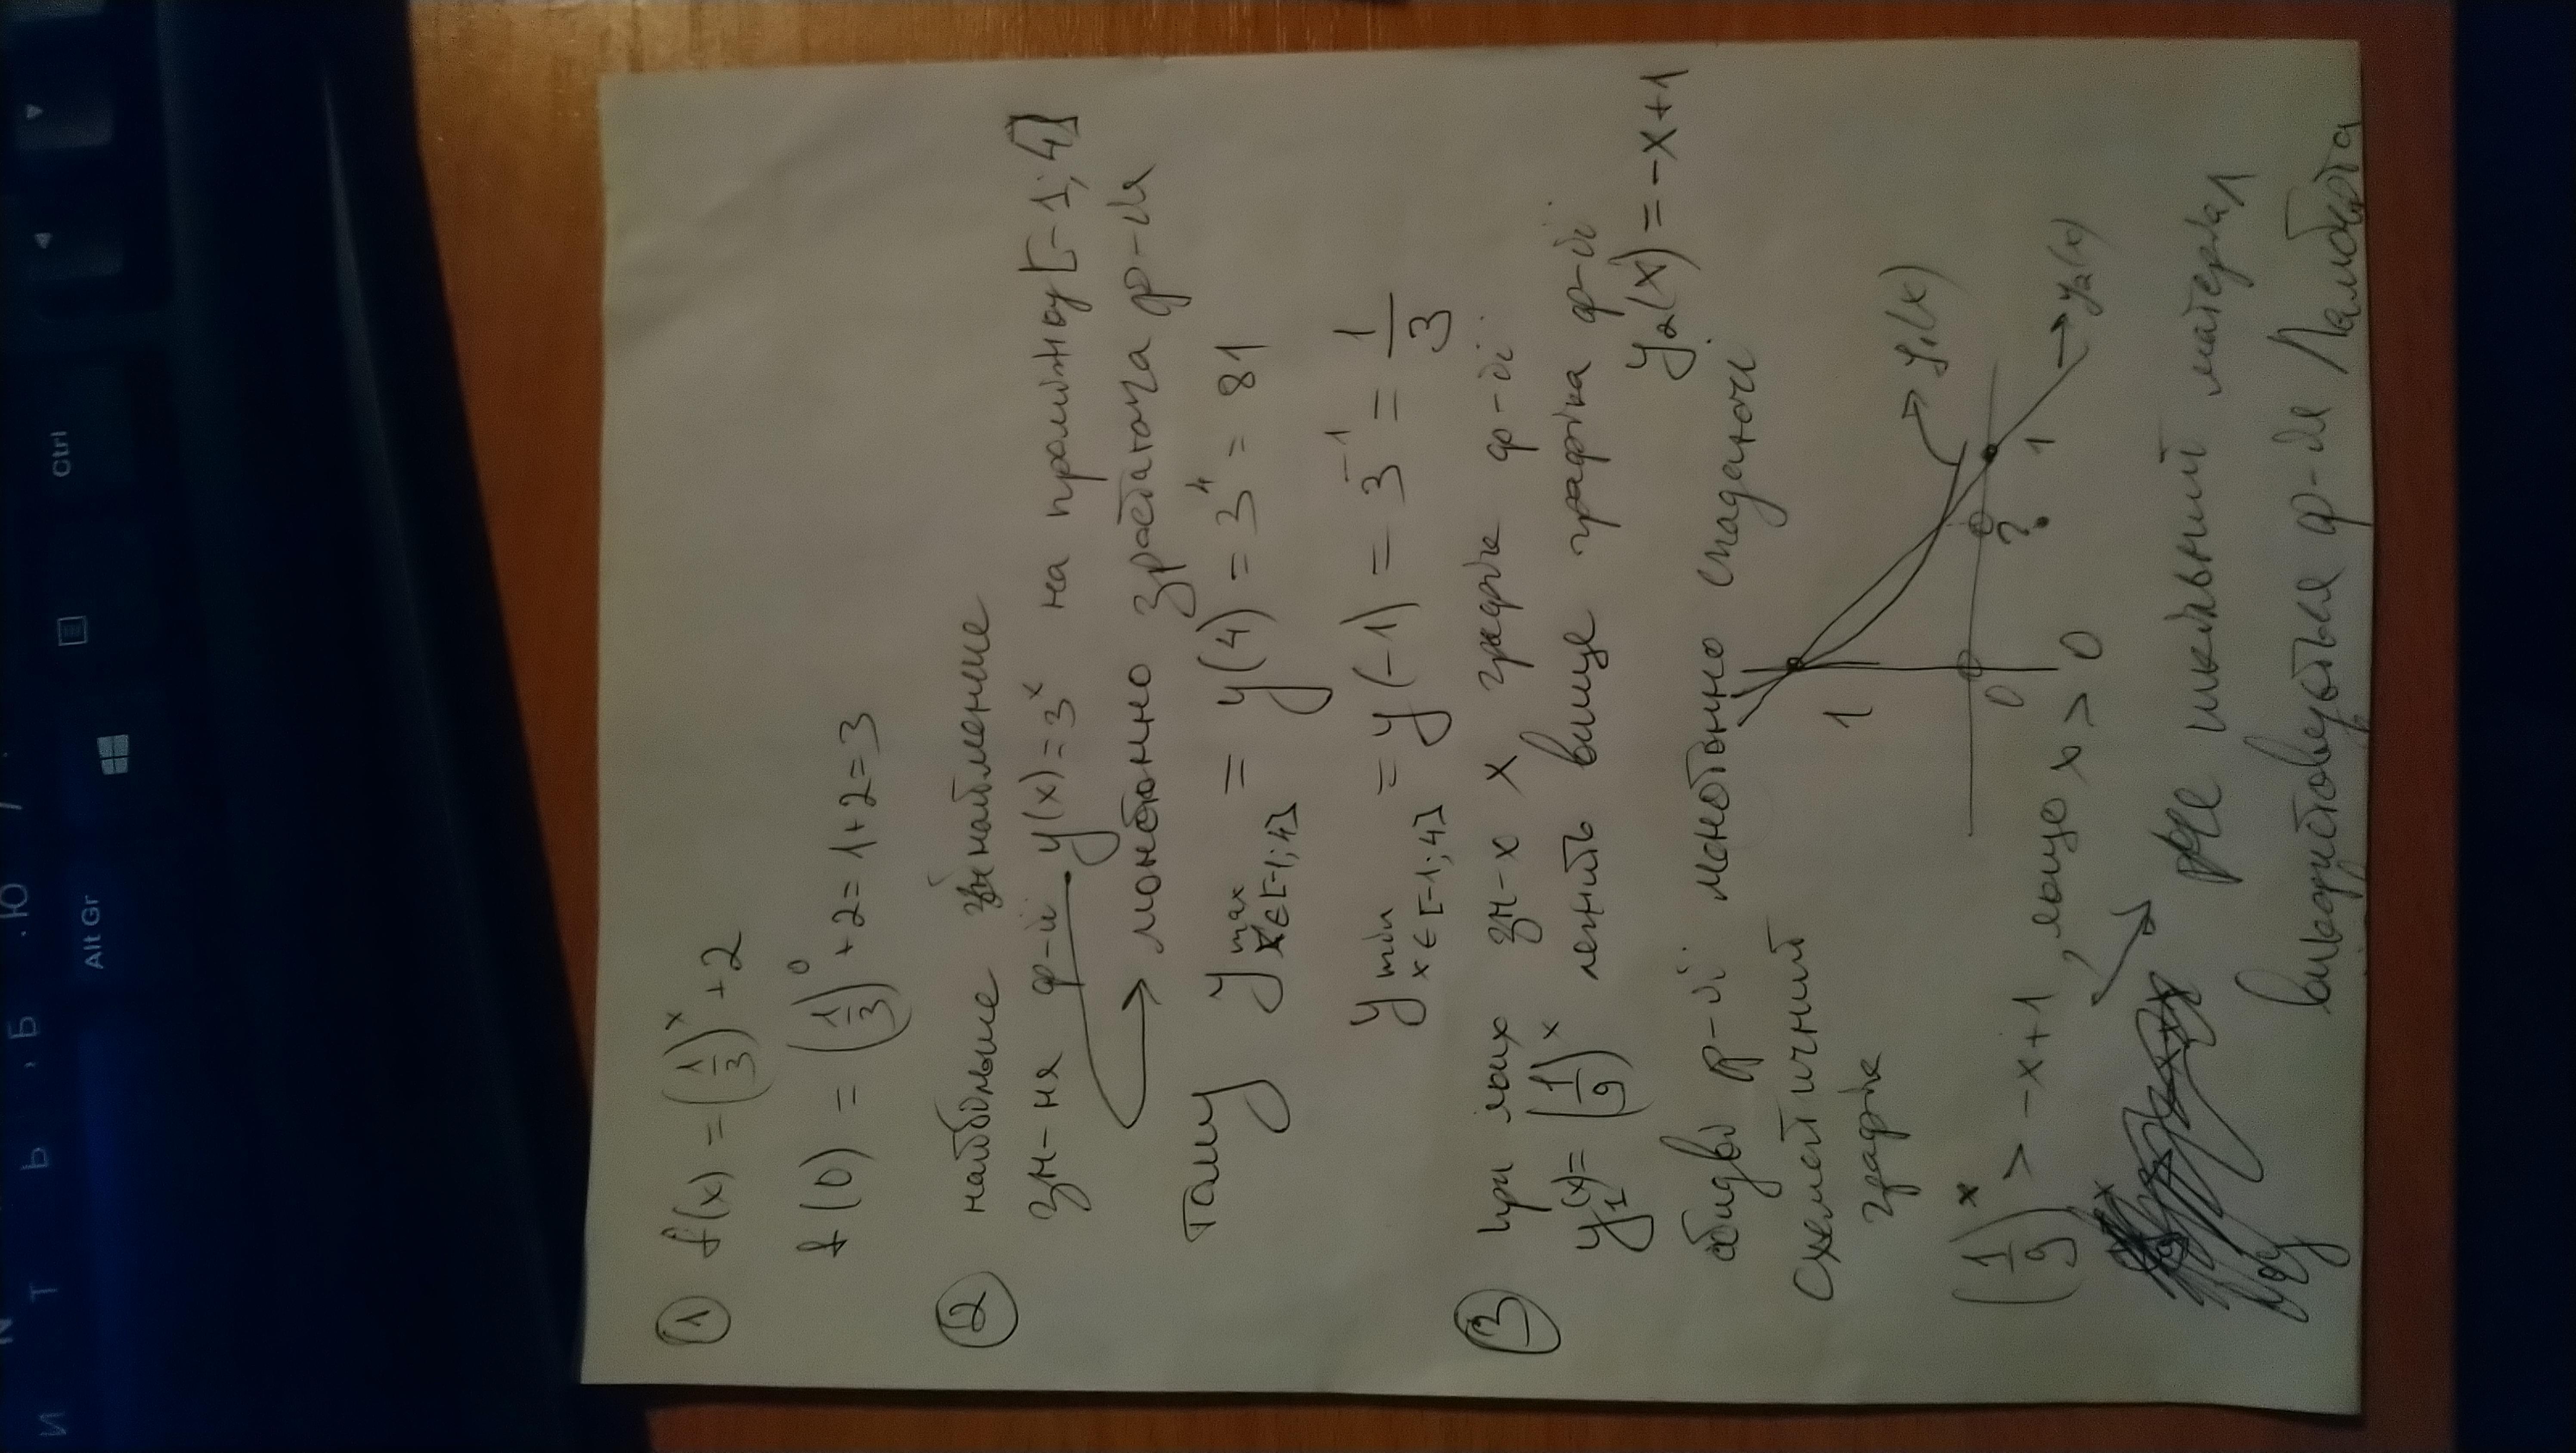 ① f(x) = (1/3)^x + 2
f(0) = (1/3)^0 + 2 = 1 + 2 = 3
② найбільше найменше
зн-ня ф-ії y(x) = 3^x на проміжку [-1; 4]
→ монотонно зростаюча ф-ія
тому y max x∈[-1; 4] = y(4) = 3^4 = 81
y min x∈[-1; 4] = y(-1) = 3^-1 = 1/3
③ при яких зн-х x графік ф-ії
y₁(x) = (1/9)^x лежить вище графіка ф-ії
y₂(x) = -x+1
обидві ф-ії монотонно спадаючі
схематичний
графік
1
→ y₁(x)
0
?
1
→ y₂(x)
(1/9)^x > -x+1, якщо x > 0
→ не шкільний матеріал
використовується ф-ія Ламберта
Ctrl
Alt Gr
И Т Ь Б Ю